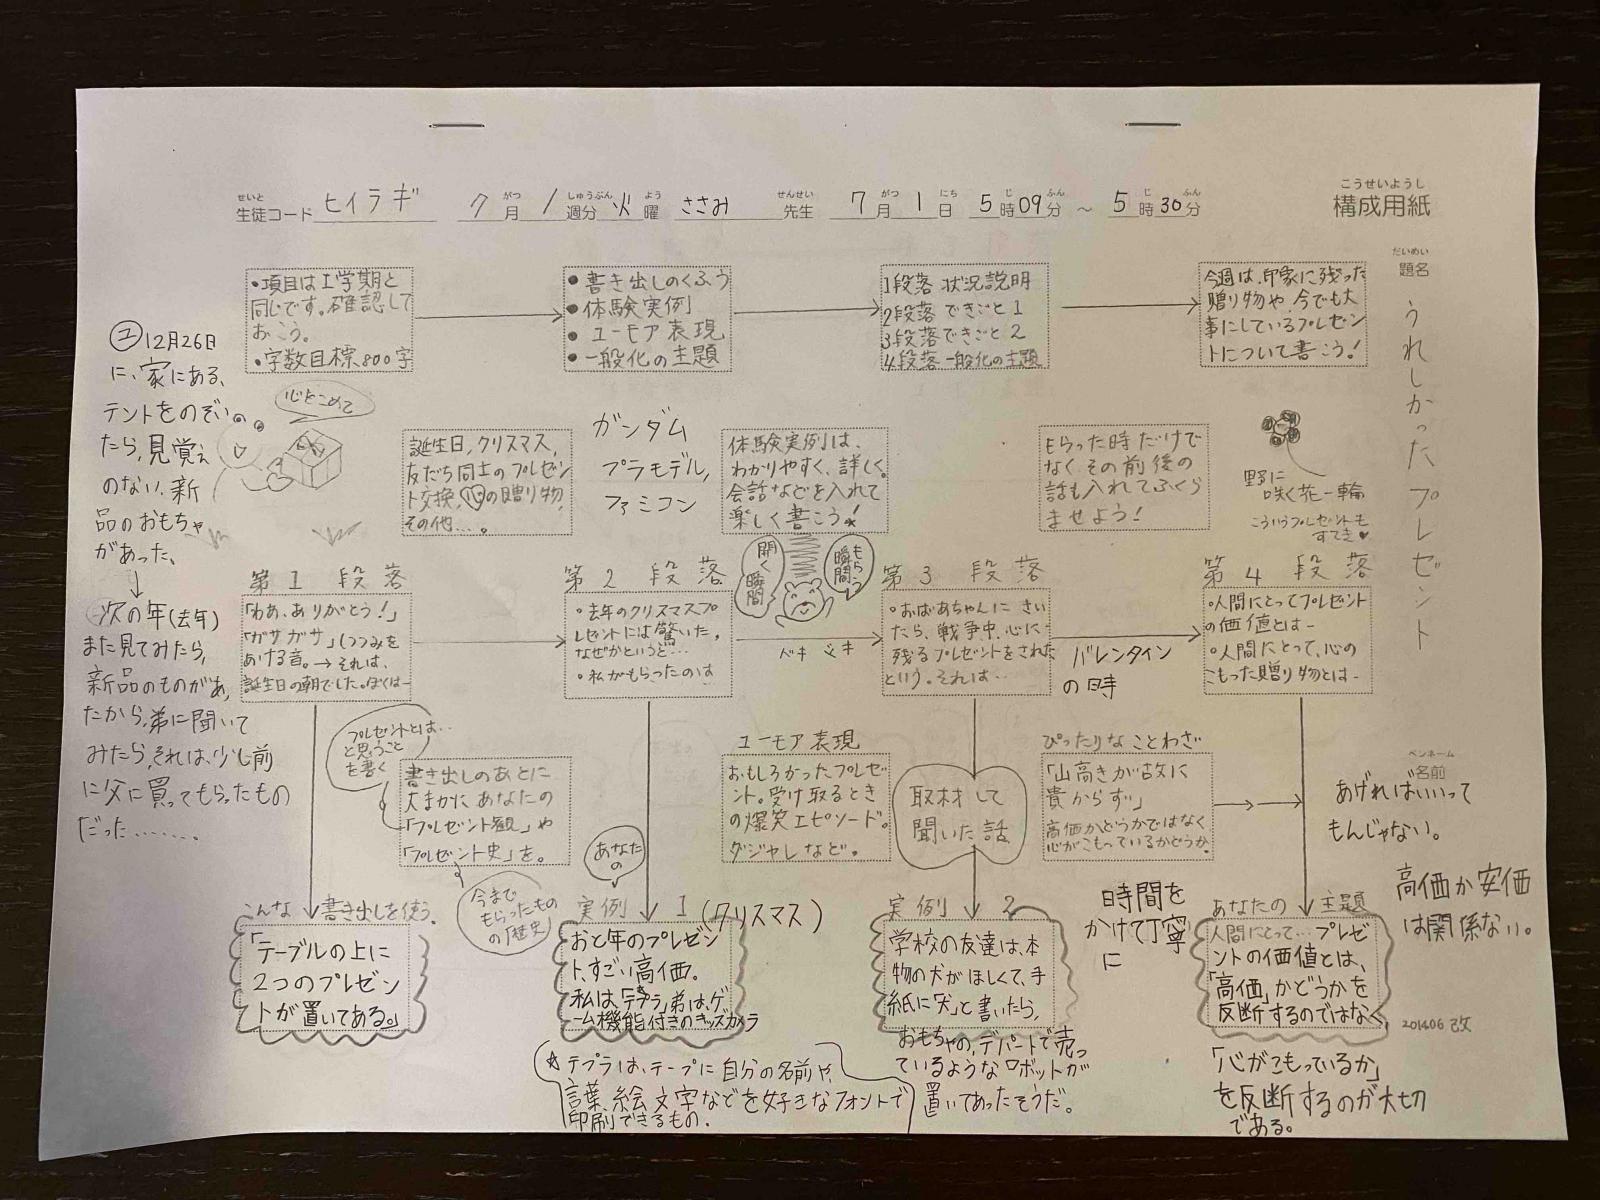 せいと
生徒コード ヒイラギ
がつ しゅうぶん よう
7月 1週分 火曜 ささみ
せんせい がつ にち じ ふん じ ふん
先生 7月1日 5時09分 ～ 5時30分
こうせいようし
構成用紙
だいめい
題名
うれしかったプレゼント
今週は、印象に残った
贈り物や、今でも大
事にしているプレゼン
トについて書こう！
1段落 状況説明
2段落 できごと1
3段落 できごと2
4段落 一般化の主題
●書き出しのくふう
●体験実例
●ユーモア表現
●一般化の主題
・項目は1学期と
同じです。確認して
おこう。
・字数目標800字
ユ 12月26日
に、家にある、
テントをのぞい
たら、見覚え
のない、新
品のおもちゃ
があった、
次の年(去年)
また見てみたら、
新品のものがあっ
たから、弟に聞いて
みたら、それは、少し前
に父に買ってもらったもの
だった………。
心をこめて
誕生日、クリスマス、
友だち同士のプレゼン
ト交換、心の贈り物、
その他…。
ガンダム
プラモデル,
ファミコン
体験実例は、
わかりやすく、詳しく。
会話などを入れて
楽しく書こう！
もらった時だけで
なく、その前後の
話も入れてふくら
ませよう！
野に
咲く花一輪
こういうプレゼントも
すてき♥
第1段落
「わあ、ありがとう！」
「ガサガサ」(つつみを
あける音。→それは、
誕生日の朝でした。ぼくは―
第2段落
・去年のクリスマスプ
レゼントには驚いた。
なぜかというと…
・私がもらったのは
開く瞬間
もらう瞬間
ベキ ベキ
第3段落
・おばあちゃんに きい
たら、戦争中、心に
残るプレゼントをされた
という。それは…
バレンタイン
の時
第4段落
・人間にとってプレゼント
の価値とは―
・人間にとって、心の
こもった贈り物とは―
プレゼントとは…
と思うこと
を書く
書き出しのあとに
大まかにあなたの
「プレゼント観」や
「プレゼント史」を。
今まで
もらったもの
の「歴史」
あなたの
ユーモア表現
おもしろかったプレゼ
ント。受け取るときの
の爆笑エピソード。
ダジャレなど。
取材して
聞いた話
ぴったりなことわざ
「山高きが故に
貴からず」
高価かどうかではなく
心がこもっているかどうか
ペンネーム
名前
あげればいいって
もんじゃない。
高価か安価
は関係ない。
こんな書き出しを使う。
「テーブルの上に
2つのプレゼン
トが置いてある。」
実例 1(クリスマス)
おと年のプレゼン
ト、すごい高価。
私は、「テプラ」弟は、ゲ
ーム機能付きのキッズカメラ
☆テプラは、テープに自分の名前や、
言葉、絵文字などを好きなフォントで
印刷できるもの.
実例 2
学校の友達は、本
物の犬がほしくて、手
紙に「犬」と書いたら、
おもちゃの、デパートで売っ
ているようなロボットが
置いてあったそうだ。
時間を
かけて丁寧
に
あなたの 主題
人間にとって…プレゼ
ントの価値とは、
「高価」かどうかを
反断するのではなく、
「心がこもっているか」
を反断するのが大切
である。
201406改